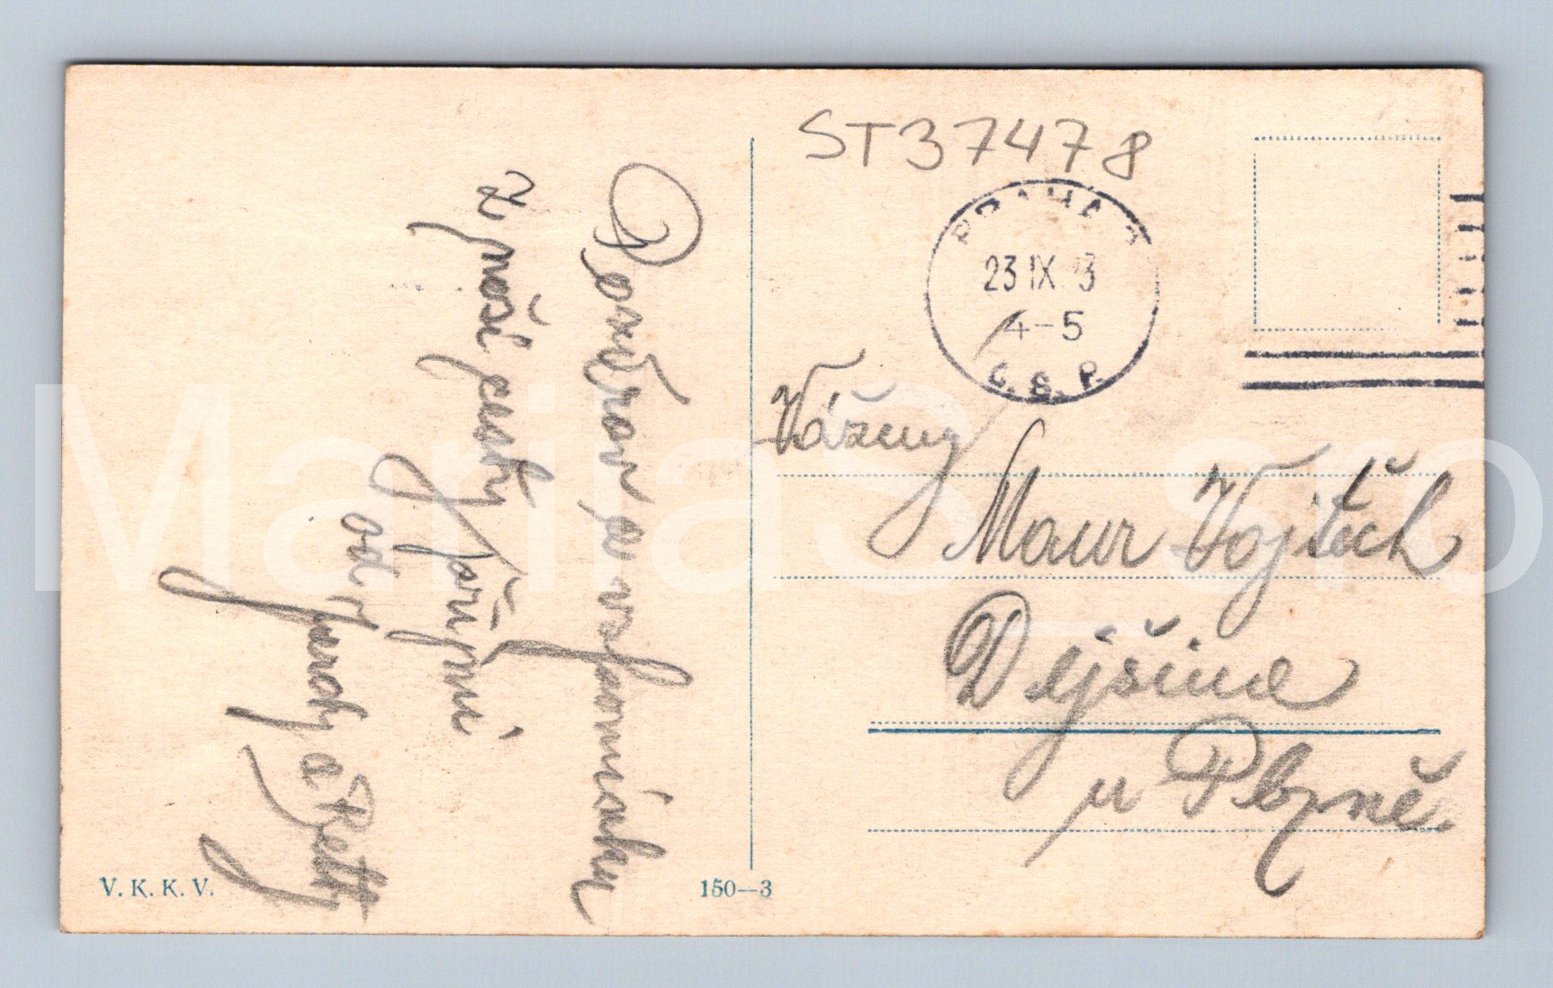 Pozdrav a vzpomínku
z pražs cesty připní
od Jardy a Betty
ST37478
PRAHA 7
23 IX 3
4-5
Č. S. P.
Vážený
Maur Vojtěch
Dejšina
u Plzně.
V. K. K. V.
150—3
MarijaS_sro